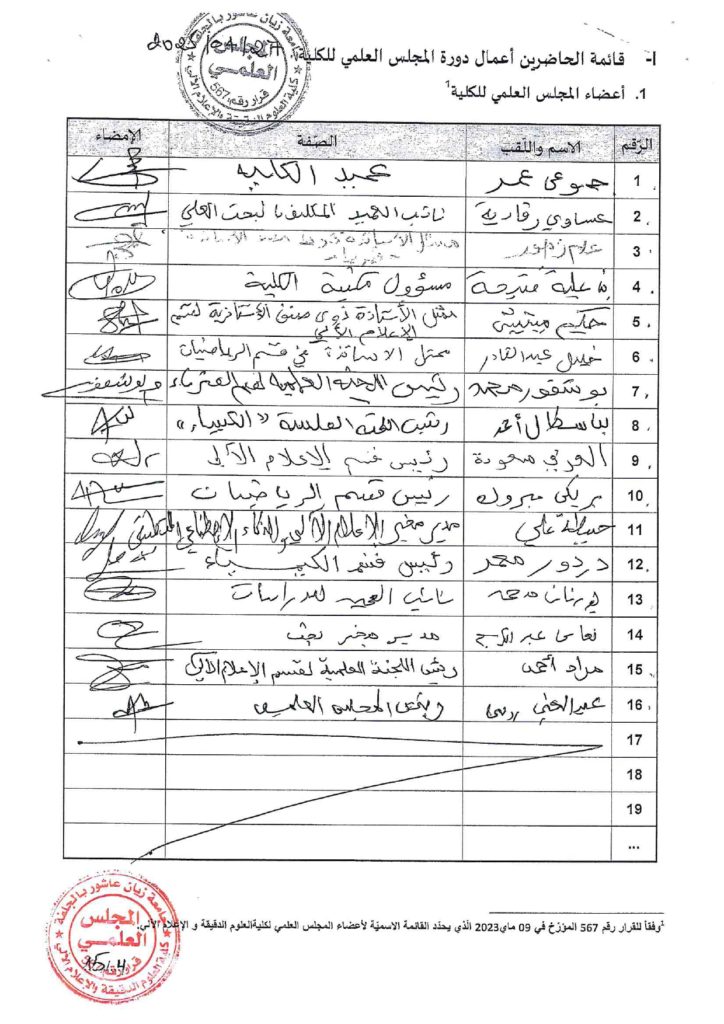 جامعة زيان عاشور بالجلفة
المجلس العلمي
قرار رقم 567
كلية العلوم الدقيقة والإعلام الآلي
I- قائمة الحاضرين أعمال دورة المجلس العلمي للكلية
1. أعضاء المجلس العلمي للكلية1
الرقم الاسم واللقب الصّفة الإمضاء
1 عمر عميد الكلية
2 عيساوي رقادية نائب العميد المكلف بالبحث العلمي
3 علام
4 فتيحة مسؤول مكتبة الكلية
5 حكيم ممثل الأستاذة ذوي صنف الأستاذية لقسم الإعلام الآلي
6 عبد القادر ممثل الاساتذة في قسم الرياضيات
7 بوشقور محمد رئيس اللجنة العلمية لقسم الفيزياء
8 بناسطال أحمد رئيس اللجنة العلمية "الكيمياء"
9 العربي مسعودة رئيس قسم الإعلام الآلي
10 بريكي مبروك رئيس قسم الرياضيات
11 علي مدير مخبر الإعلام الآلي والذكاء الإصطناعي
12 دردور محمد رئيس قسم الكيمياء
13 محمد نائب العميد للدراسات
14 نعاس عبد الكريم مدير مخبر بحث
15 مراد أحمد رئيس اللجنة العلمية لقسم الإعلام الآلي
16 عبد الغني رئيس المجلس العلمي
17
18
19
...
1وفقاً للقرار رقم 567 المؤرّخ في 09 ماي2023 الّذي يحدّد القائمة الاسميّة لأعضاء المجلس العلمي لكليةالعلوم الدقيقة و الإعلام الآلي.
جامعة زيان عاشور بالجلفة
المجلس العلمي
كلية العلوم الدقيقة والإعلام الآلي